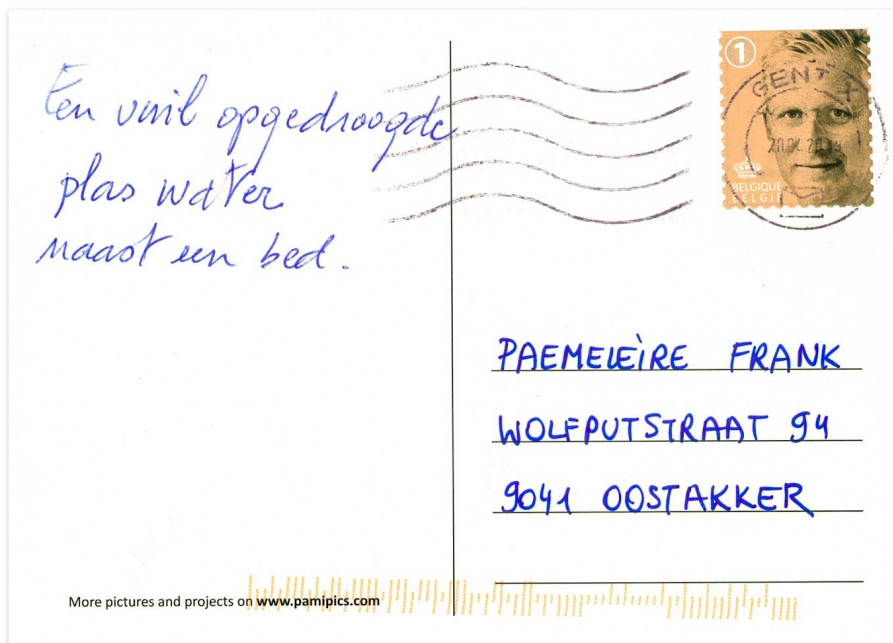 Een vuil opgedroogde
plas water
naast een bed.
1
GENT X
BELGIQUE
BELGIE
PAEMELEIRE FRANK
WOLFPUTSTRAAT 94
9041 OOSTAKKER
More pictures and projects on www.pamipics.com